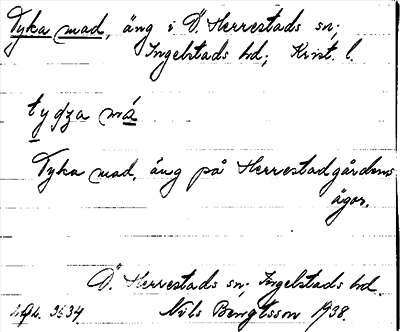 Tyka mad, äng i Ö. Herrestads sn;
Ingelstads hd; Krist. l.
Tyka mad, äng på Herrestadgårdens
ägor.
Ö. Herrestads sn; Ingelstads hd.
3634. Nils Bengtsson 1938.